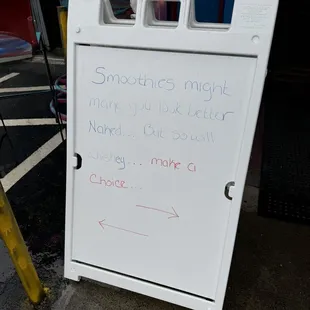 Smoothies might
make you look better
Naked... But so will
whiskey... make a
Choice...